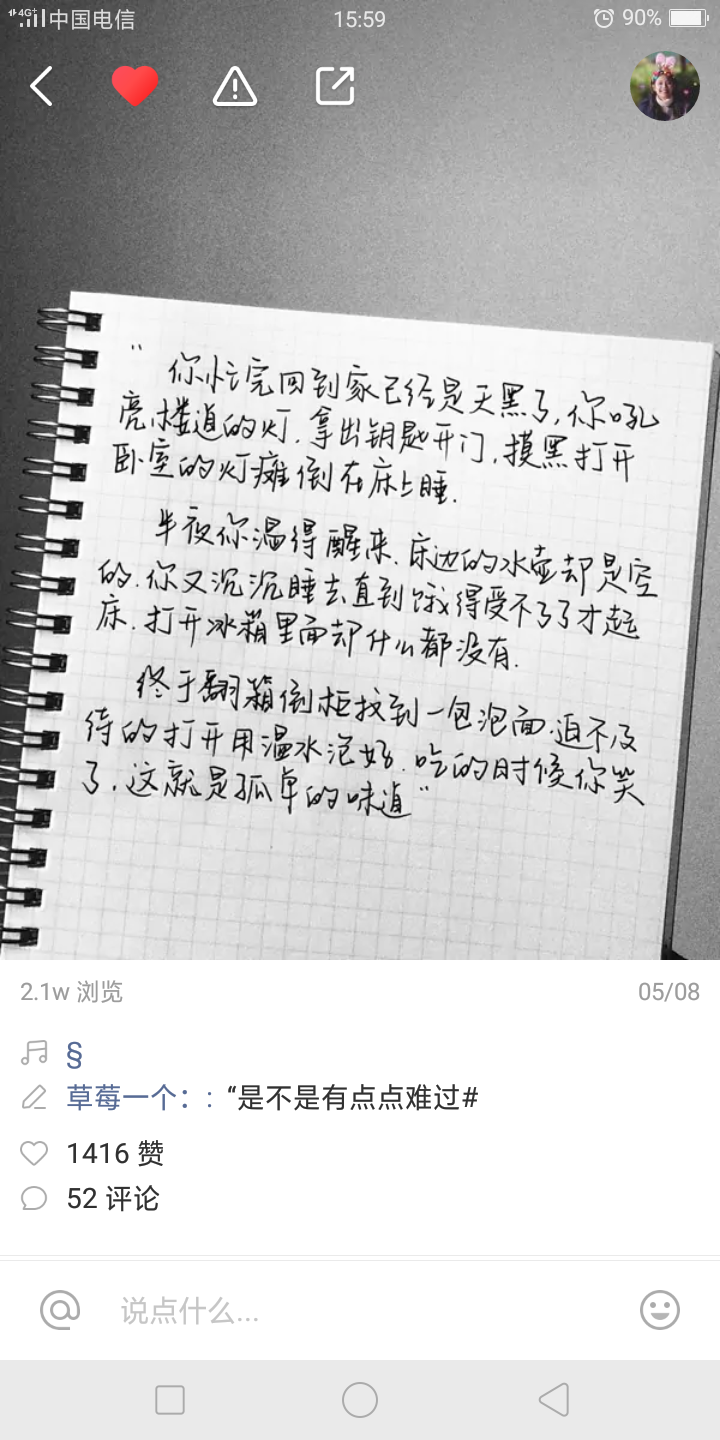 4G+ 中国电信 15:59 90%
“ 你忙完回到家已经是天黑了,你吼
亮楼道的灯.拿出钥匙开门,摸黑打开
卧室的灯瘫倒在床上睡.
半夜你渴得醒来.床边的水壶却是空
的.你又沉沉睡去直到饿得受不了了才起
床.打开冰箱里面却什么都没有.
终于翻箱倒柜找到一包泡面.迫不及
待的打开用温水泡好.吃的时候你笑
了,这就是孤单的味道”
2.1w 浏览 05/08
§
草莓一个:: “是不是有点点难过#
1416 赞
52 评论
@ 说点什么...